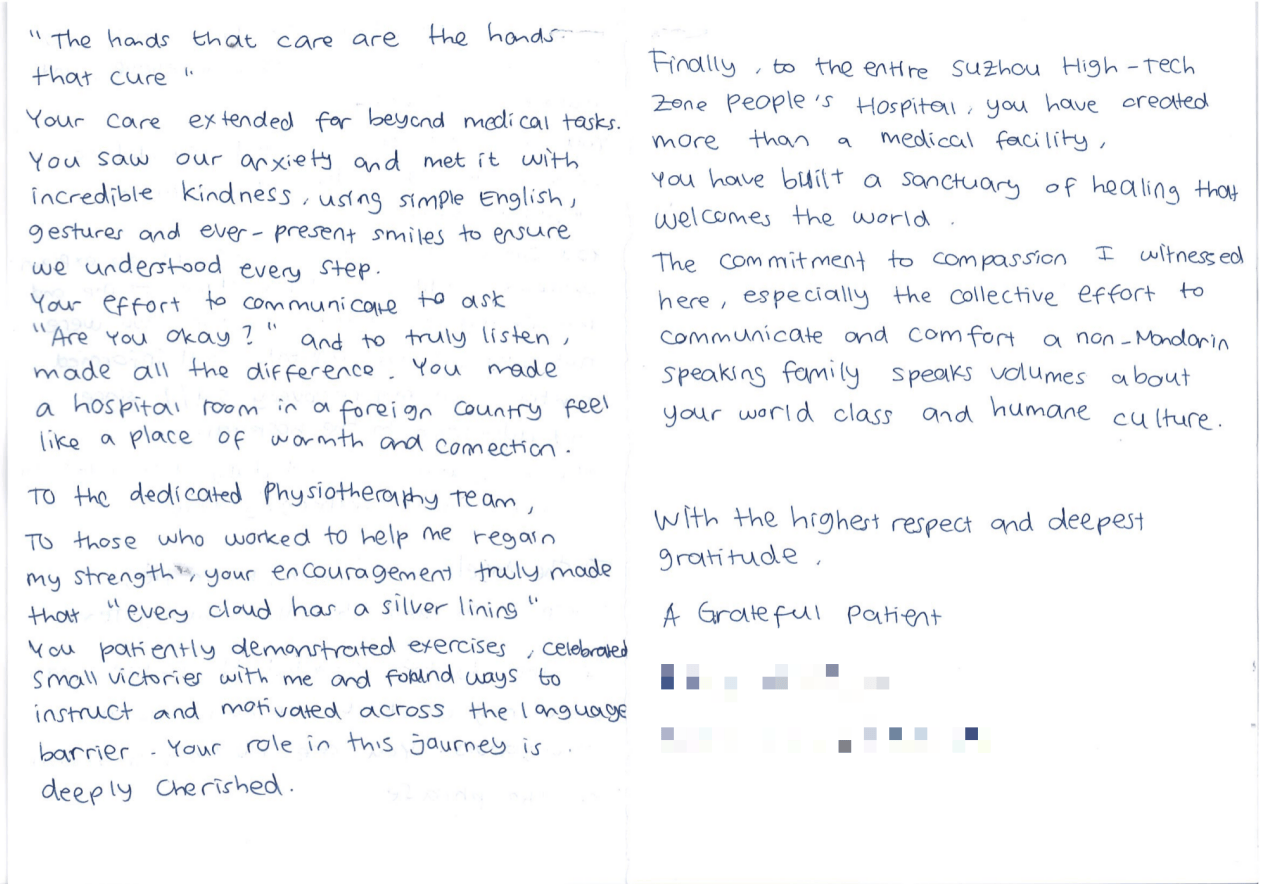 "The hands that care are the hands
that cure"
Your care extended far beyond medical tasks.
You saw our anxiety and met it with
incredible kindness, using simple English,
gestures and ever-present smiles to ensure
we understood every step.
Your effort to communicate to ask
"Are you okay?" and to truly listen,
made all the difference. You made
a hospital room in a foreign country feel
like a place of warmth and connection.
To the dedicated Physiotheraphy Team,
To those who worked to help me regain
my strength, your encouragement truly made
that "every cloud has a silver lining"
You patiently demonstrated exercises, celebrated
small victories with me and found ways to
instruct and motivated across the language
barrier. Your role in this jaurney is
deeply cherished.
Finally, to the entire Suzhou High-Tech
Zone People's Hospital, you have created
more than a medical facility,
you have built a sanctuary of healing that
welcomes the world.
The commitment to compassion I witnessed
here, especially the collective effort to
communicate and comfort a non-Mandarin
speaking family speaks volumes about
your world class and humane culture.
With the highest respect and deepest
gratitude,
A Grateful Patient